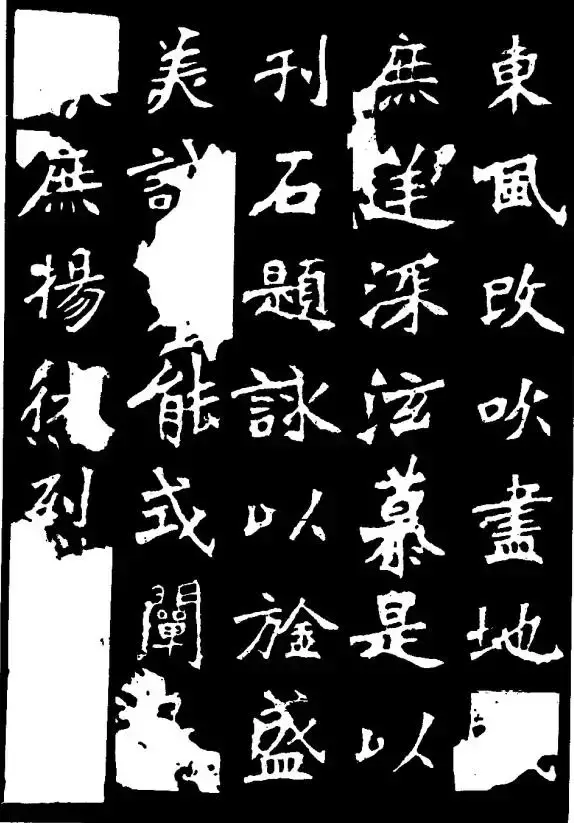 東風改吹盡地
庶逮深泫慕是以
刊石題詠以旌盛
美能式闡
庶揚烈